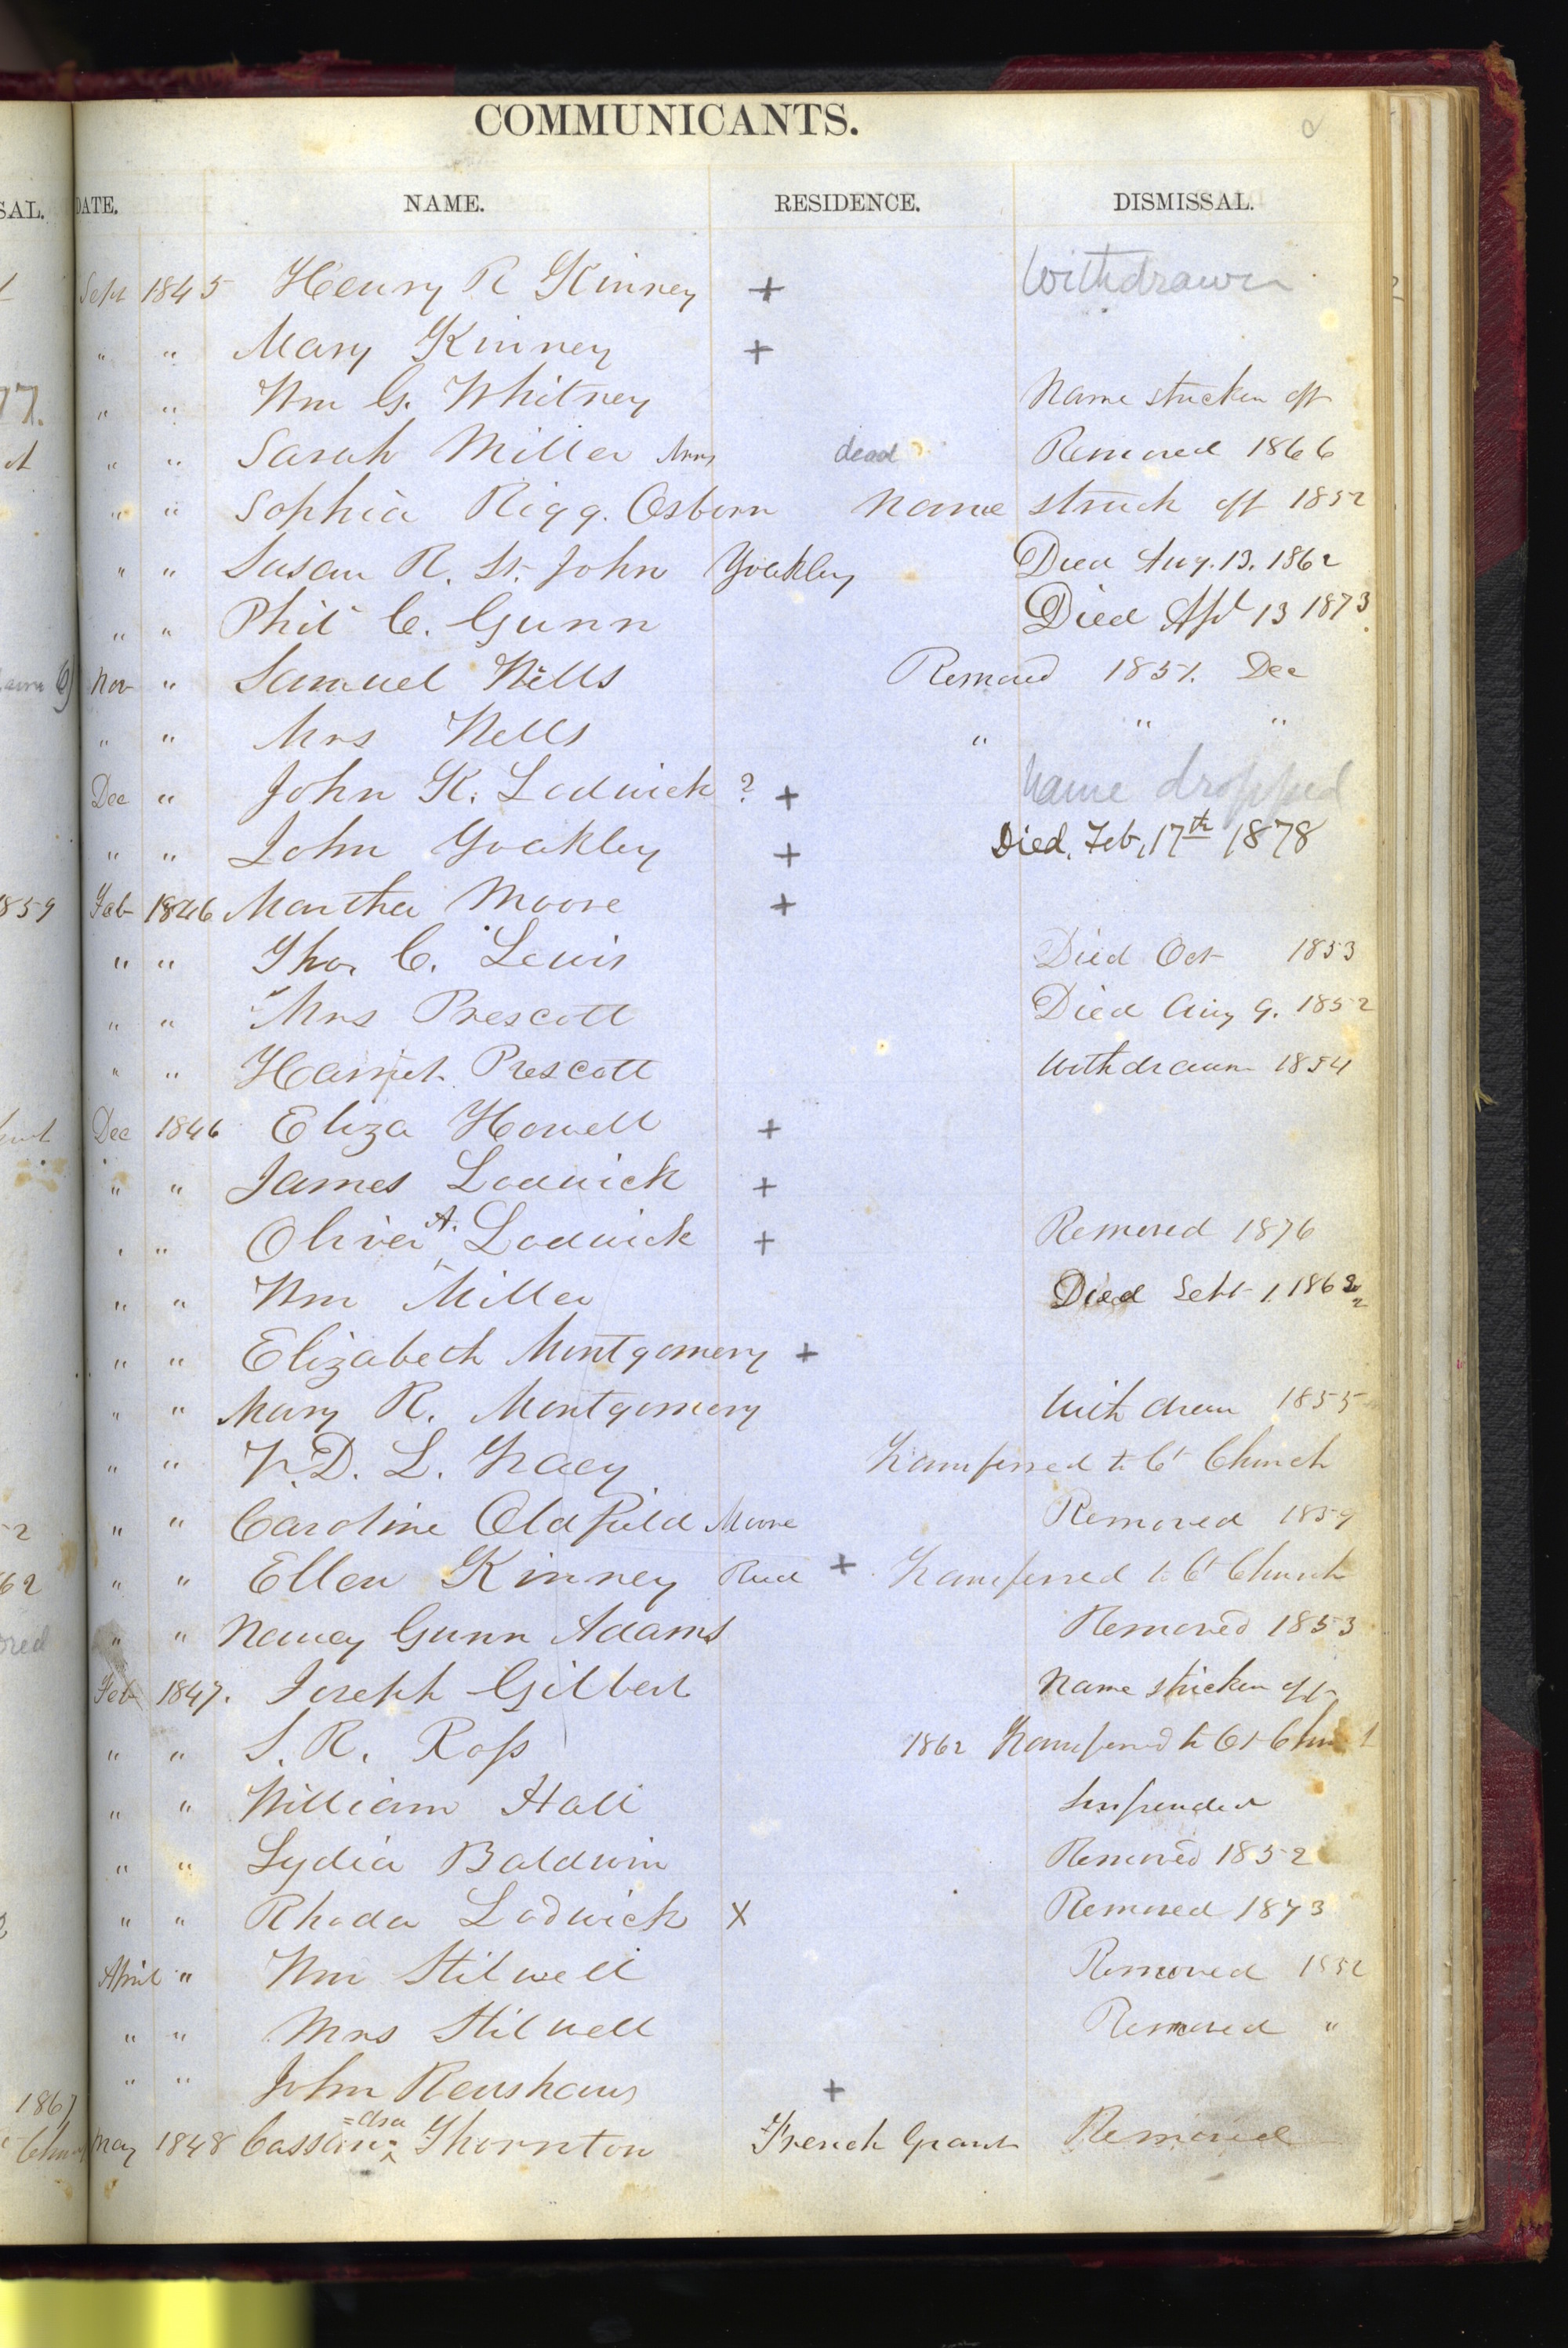 COMMUNICANTS.
2
SAL. DATE. NAME. RESIDENCE. DISMISSAL.
Sept 1845 Henry R Kinney + Withdrawn
" " Mary Kinney +
77. " " Wm G. Whitney Name stricken off
" " Sarah Miller Mrs dead Removed 1866
" " Sophia Rigg. Osborn Name struck off 1852
" " Susan R. St. John Yoakley Died Aug. 13. 1862
" " Phil C. Gunn Died Apl 13 1873.
Nov " Samuel Wells Removed 1851. Dec
" " Mrs Wells " " "
Dec " John K. Lodwick ? + Name dropped
" " John Yoakley + Died, Feb, 17th 1878
1859 Feb 1846 Martha Moore +
" " Thos C. Lewis Died Oct 1853
" " Mrs Prescott Died Aug 9. 1852
" " Harriet Prescott Withdrawn 1854
Dec 1846 Eliza Howell +
" " James Lodwick +
" " Oliver A. Lodwick + Removed 1876
" " Wm Miller Died Sept 1. 1862
" " Elizabeth Montgomery +
" " Mary R. Montgomery With drawn 1855
" " L. Tracy Transferred to Ct Church
" " Caroline Oldfield Moore Removed 1859
62 " " Ellen Kinney + Transferred to Ct Church
" " Nancy Gunn Adams Removed 1853
Feb 1847. Joseph Gilbert Name stricken off
" " S. R. Ross 1862 Transferred to Ct Church
" " William Hall Suspended
" " Lydia Baldwin Removed 1852
" " Rhoda Lodwick X Removed 1873
April " Wm Stilwell Removed 1852
" " Mrs Stilwell Removed "
" " John Renshaw +
1867
=dra
May 1848 Cassan= Thornton French Grant Removed